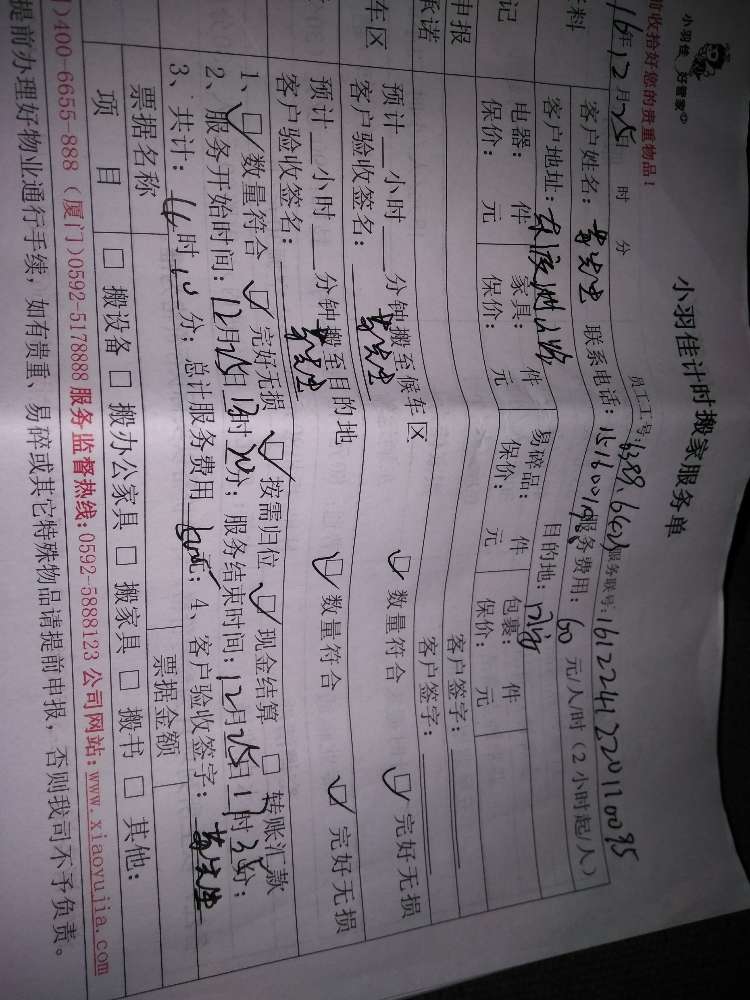 小羽佳 好管家
小羽佳计时搬家服务单
前收拾好您的贵重物品！
员工工号:
服务联号:1612241220110095
16年12月25日 时 分
客户姓名: 黄先生 联系电话: 服务费用: 60 元/人/时（2小时起/人）
客户地址: 目的地:
电器: 件 家具: 件 易碎品: 件 包裹: 件
保价: 元 保价: 元 保价: 元 保价: 元
记
客户签字:
申报
承诺
客户签字:
预计 小时 分钟搬至候车区 数量符合 完好无损
车区
客户验收签名: 黄先生
预计 小时 分钟搬至目的地 数量符合 完好无损
客户验收签名: 黄先生
1、数量符合 完好无损 按需归位 现金结算 转账汇款
2、服务开始时间: 12月25日13时20分; 服务结束时间: 12月25日17时35分;
3、共计: 时 分; 总计服务费用 元; 4、客户验收签字: 黄先生
票据名称 票据金额
项 目 搬设备 搬办公家具 搬家具 搬书 其他:
)400-6655-888（厦门)0592-5178888 服务监督热线:0592-5888123 公司网站:www.xiaoyujia.com
提前办理好物业通行手续，如有贵重、易碎或其它特殊物品请提前申报，否则我司不予负责。